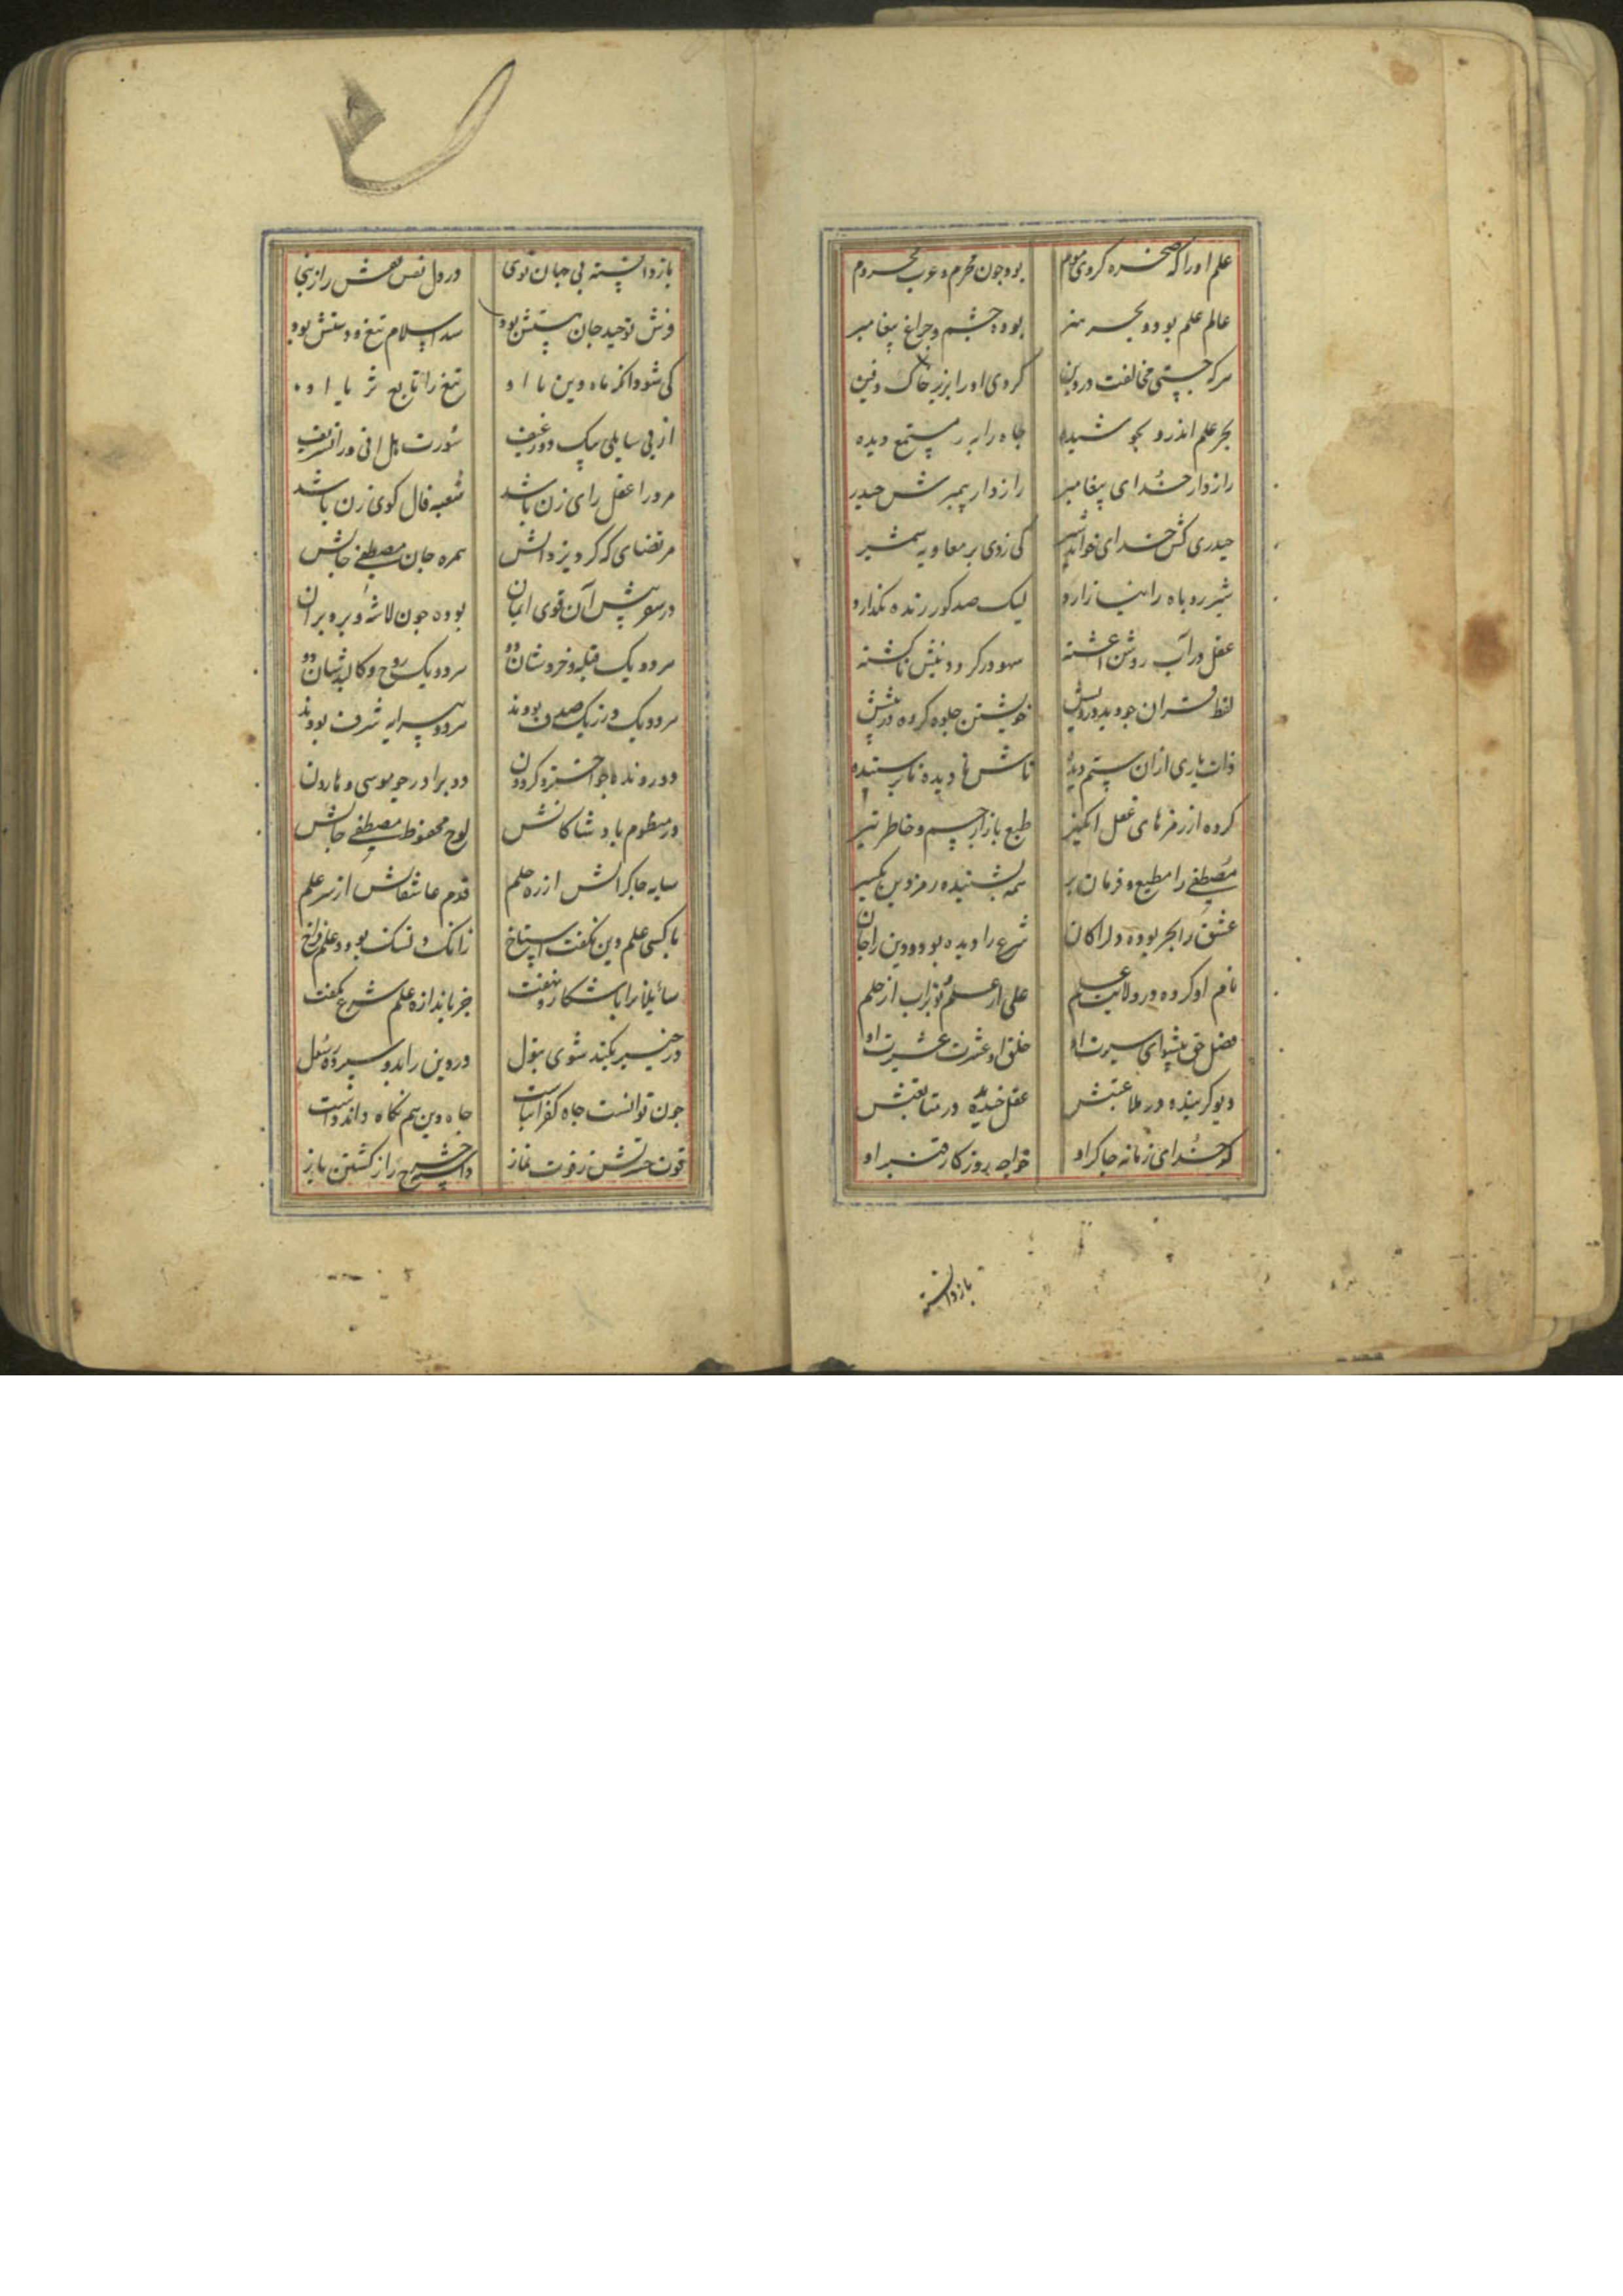 علم اورا که صخره کردی موم بود چون محرم و عرب محروم
عالم علم بود و بحر هنر بوده چشم و چراغ پیغامبر
هرکه جستی مخالفت در دین کردی او را بزیر خاک دفین
بحر علم اندرو بجوشیده چاه را به ز مستمع دیده
رازدار خدای پیغامبر رازدار پیمبرش حیدر
حیدری کش خدای خواند شیر کی زدی بر معاویه شمشیر
شیر روباه را نیازارد لیک صد گور زنده نگذارد
عقل در آب روش اغشته سهو در گرد دینش ناگشته
لفظ قران چو دید در ویش خویشتن جلوه کرده در پیشش
ذات باری ازان ستم دیده تاش نادیده ناپرستیده
کرده از رمزهای عقل انگیز طبع بازار جسم و خاطر تیز
مصطفی را مطیع و فرمان بر همه بشنیده رمز دین یکسر
عشق را بحر بوده دل را کان شرع را دیده بود و دین را جان
نام او کرده در ولایت علم علی از علم و بوتراب از حلم
فضل حق پیشوای سیرت او خلق او عشرت عشیرت او
دیو گرینده در ملاعبتش عقل خنده در متابعتش
کو خدای زمانه چاکر او خواجه روزگار قنبر او
بازدانسته
بازدانسته بی جهان توی در دل نفس نقش راز نجا
فرش توحید جان پستش بود سد اسلام تیغ و دستش بود
کی شود انکه ماه دین با او تیغ را تابع ثریا او
از پی سایلی بیک دو رغیف سورت هل اتی ورا تشریف
مر ورا عقل رای زن باشد شعبه فال گوی زن باشد
مرتضای که کرد یزدانش همره جان مصطفی جانش
در سفر پیش آن قوی ایمان بوده چون لاشه و بر و بران
هر دو یک قبله و خردشان دو هر دو یک روح و کالبدشان دو
هر دو یک در ز یک صدف بودند هر دو پیرایه شرف بودند
دو رونده چو اختر و گردون دو برادر چو موسی و هارون
در منظوم باد شاکانش لوح محفوظ مصطفی جانش
سایه چاکرانش از ره حلم قدم عاشقانش از سر علم
با کسی علم دین نگفت استاخ زانک دل تنک بود و علم فراخ
سائلانرا باشکار و نهفت جز باندازه علم شرع نگفت
در خیبر بکند شوی بتول در دین را بدو سپرده رسول
چون توانست چاه کفر انباشت چاه دین هم نگاه داند داشت
قوت حسرتش ز فوت نماز داشته چرخ را ز گشتن باز